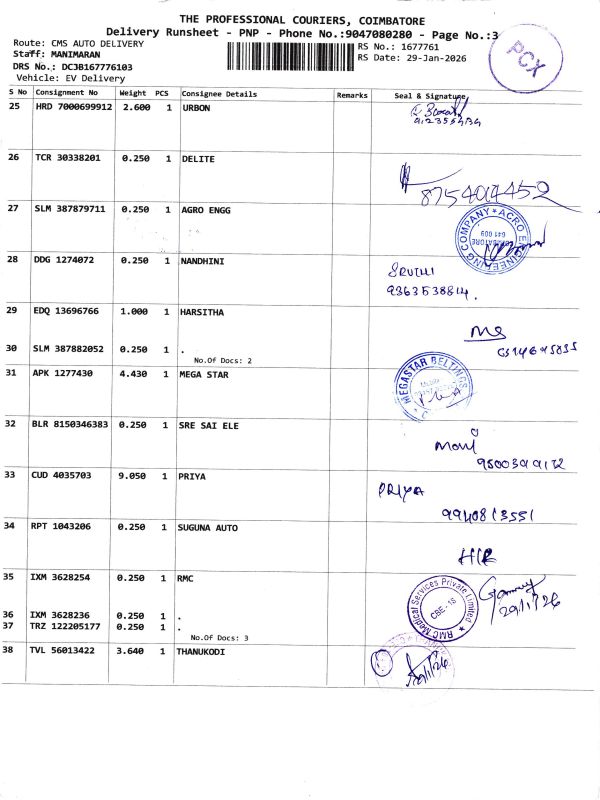 THE PROFESSIONAL COURIERS, COIMBATORE
Delivery Runsheet - PNP - Phone No.:9047080280 - Page No.:3
Route: CMS AUTO DELIVERY
Staff: MANIMARAN
DRS No.: DCJB167776103
Vehicle: EV Delivery
RS No.: 1677761
RS Date: 29-Jan-2026
PCX
S No Consignment No Weight PCS Consignee Details Remarks Seal & Signature
25 HRD 7000699912 2.600 1 URBON
26 TCR 30338201 0.250 1 DELITE
8754914452
27 SLM 387879711 0.250 1 AGRO ENGG
AGRO ENGINEERING COMPANY
COIMBATORE
641 009
28 DDG 1274072 0.250 1 NANDHINI
SRUTHI
9363538814.
29 EDQ 13696766 1.000 1 HARSITHA
30 SLM 387882052 0.250 1 .
No.Of Docs: 2
31 APK 1277430 4.430 1 MEGA STAR
MEGASTAR BELTINGS
32 BLR 8150346383 0.250 1 SRE SAI ELE
33 CUD 4035703 9.050 1 PRIYA
PRIYA
9940813551
34 RPT 1043206 0.250 1 SUGUNA AUTO
35 IXM 3628254 0.250 1 RMC
RMC Medical Services Private Limited
CBE-18
29/1/26
36 IXM 3628236 0.250 1 .
37 TRZ 122205177 0.250 1 .
No.Of Docs: 3
38 TVL 56013422 3.640 1 THANUKODI